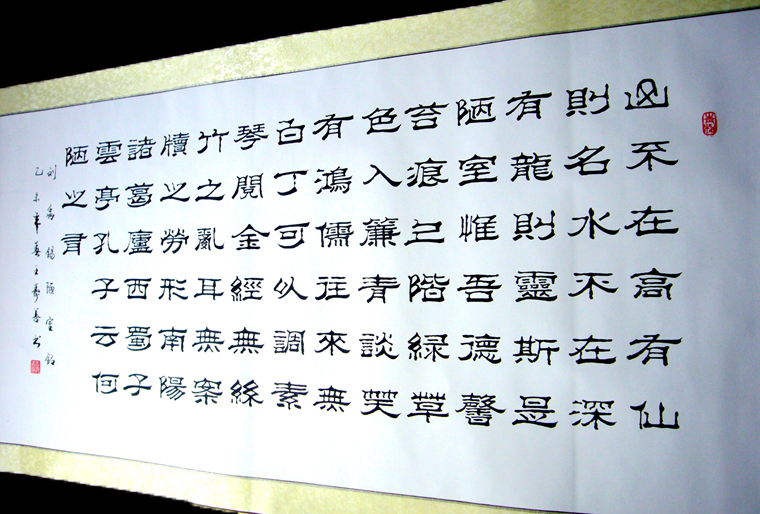 山不在高有仙
則名水不在深
有龍則靈斯是
陋室惟吾德馨
苔痕上階綠草
色入簾青談笑
有鴻儒往來無
白丁可以調素
琴閱金經無絲
竹之亂耳無案
牘之勞形南陽
諸葛廬西蜀子
雲亭孔子云何
陋之有
刘禹锡陋室铭
乙未年春王
书